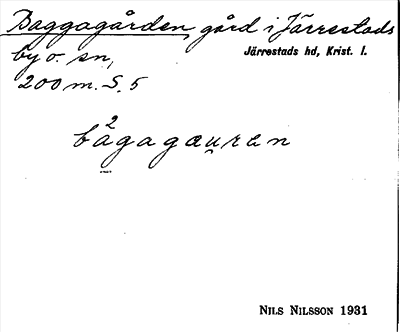 Baggagården, gård i Järrestads
by o. sn,
Järrestads hd, Krist. l.
200 m. S. 5
bå²gagæu̯rən
NILS NILSSON 1931